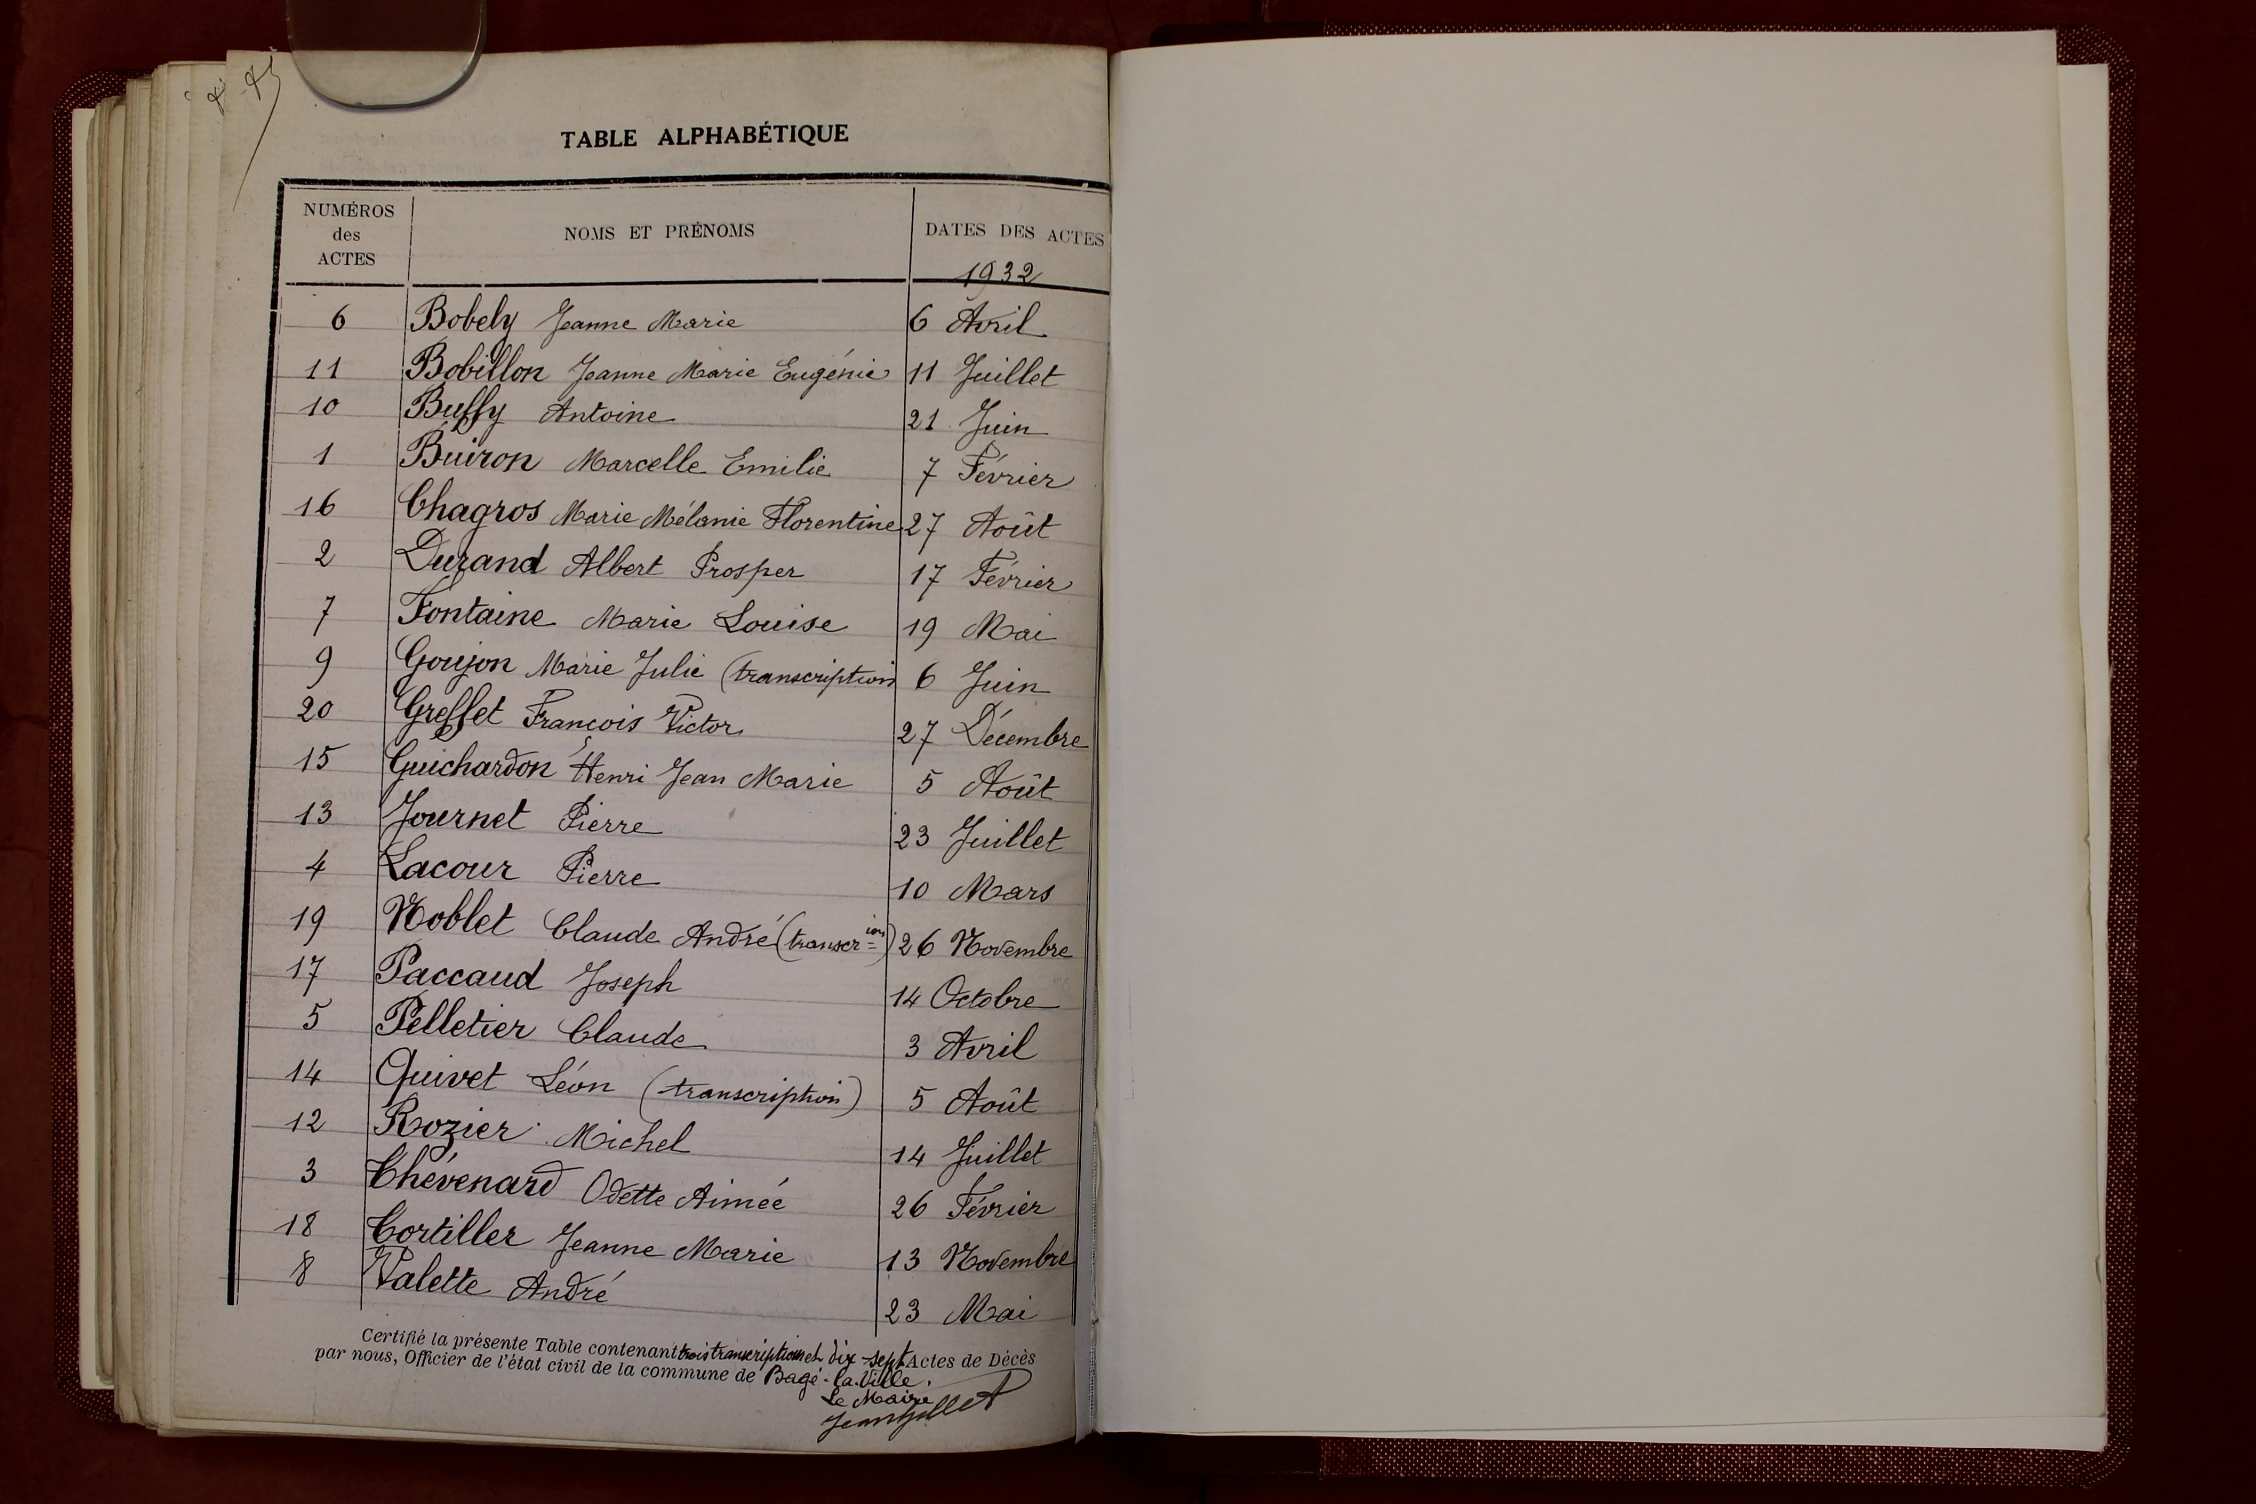 TABLE ALPHABÉTIQUE
NUMÉROS des ACTES NOMS ET PRÉNOMS DATES DES ACTES
1932
6 Bobely Jeanne Marie 6 Avril
11 Bobillon Jeanne Marie Eugénie 11 Juillet
10 Buffy Antoine 21 Juin
1 Buiron Marcelle Emilie 7 Février
16 Chagros Marie Mélanie Florentine 27 Août
2 Durand Albert Prosper 17 Février
7 Fontaine Marie Louise 19 Mai
9 Goujon Marie Julie (transcription 6 Juin
20 Greffet François Victor 27 Décembre
15 Guichardon Henri Jean Marie 5 Août
13 Journet Pierre 23 Juillet
4 Lacour Pierre 10 Mars
19 Noblet Claude André (transcrion) 26 Novembre
17 Paccaud Joseph 14 Octobre
5 Pelletier Claude 3 Avril
14 Quivet Léon (transcription) 5 Août
12 Rozier Michel 14 Juillet
3 Chévenard Odette Aimée 26 Février
18 Cortiller Jeanne Marie 13 Novembre
8 Valette André 23 Mai
Certifié la présente Table contenant trois transcriptions et dix-sept Actes de Décès
par nous, Officier de l'état civil de la commune de Bagé-la-Ville.
Le Maire